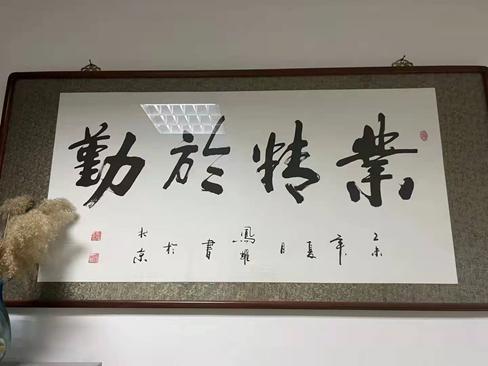 業精於勤
乙未年夏日鳳耀書於北京